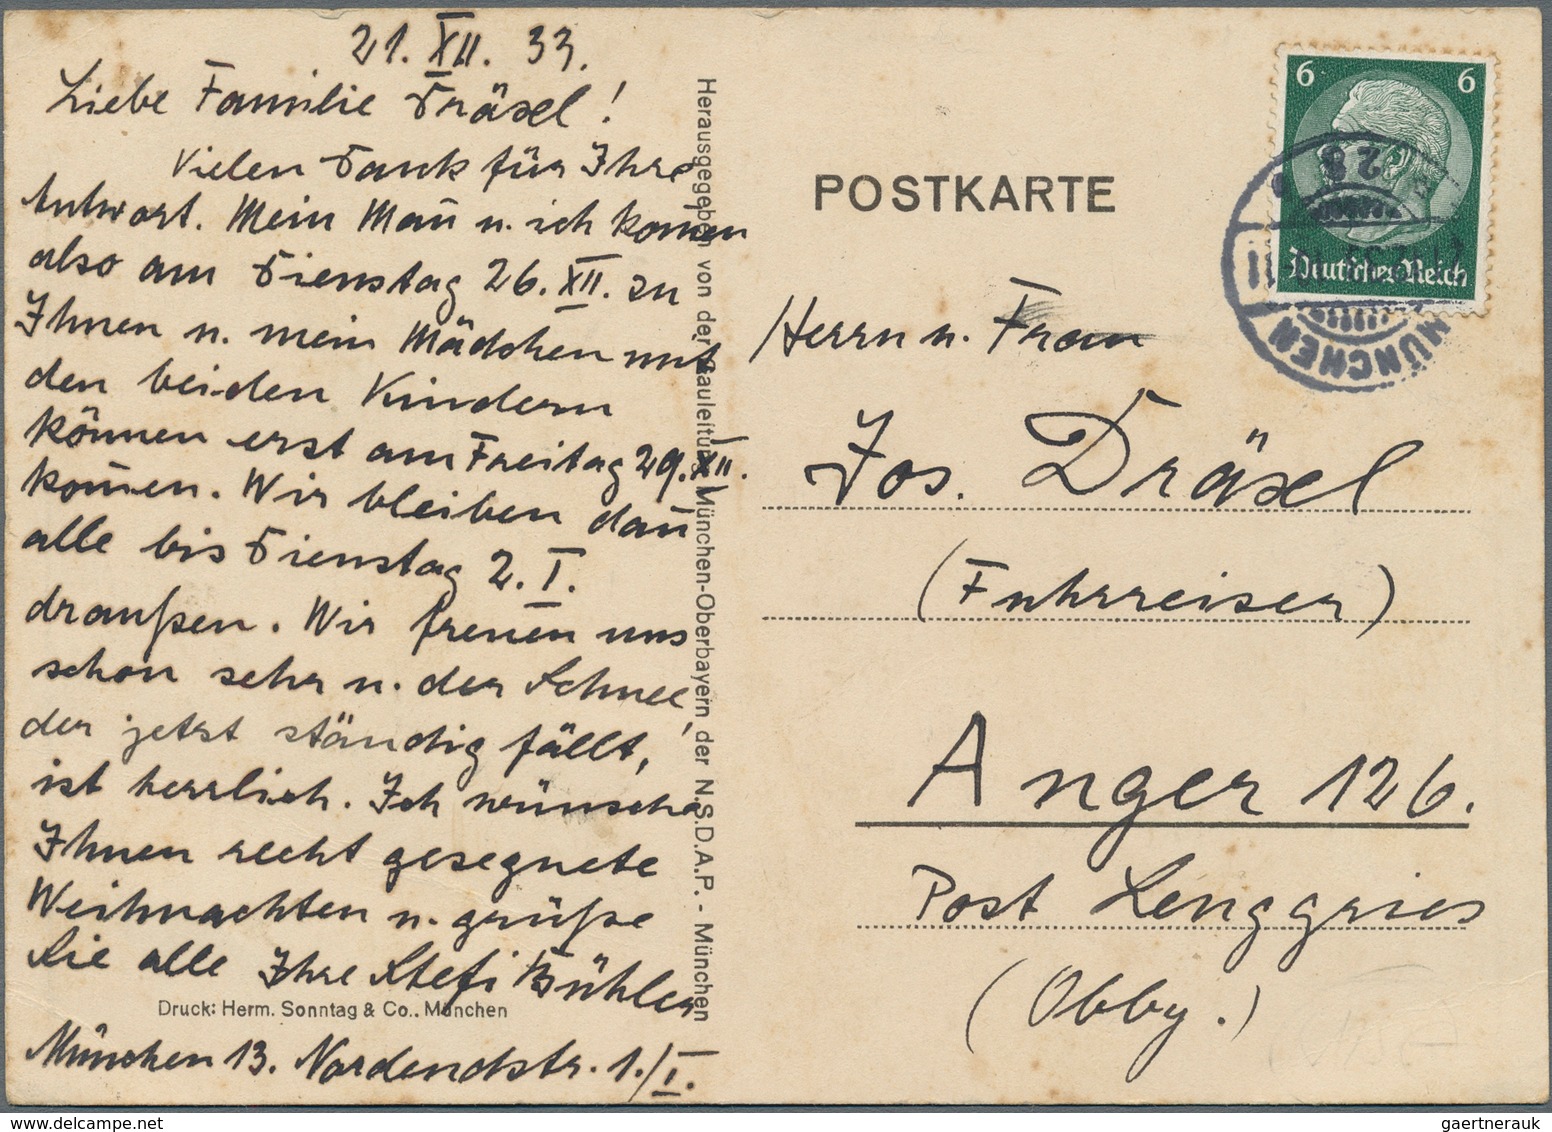 21. XII. 33.
Liebe Familie Dräxl!
Vielen Dank für Ihre
Antwort. Mein Mañ u. ich kom̃en
also am Dienstag 26. XII. zu
Ihnen u. mein Mädchen mit
den beiden Kindern
können erst am Freitag 29. XII.
kom̃en. Wir bleiben dañ
alle bis Dienstag 2. I.
draußen. Wir freuen uns
schon sehr u. der Schnee,
der jetzt ständig fällt,
ist herrlich. Ich wünsche
Ihnen recht gesegnete
Weihnachten u. grüße
Sie alle Ihre Stefi Bühler
Druck: Herm. Sonntag & Co., München
München 13. Nordendstr. 1./I.
Herausgegeben von der Gauleitung München-Oberbayern der N.S.D.A.P. - München
POSTKARTE
6 6
Deutsches Reich
MÜNCHEN
Herrn u. Frau
Jos. Dräxl
(Fuhrreiser)
Anger 126.
Post Lenggries
(Obby.)
gaertnerauk